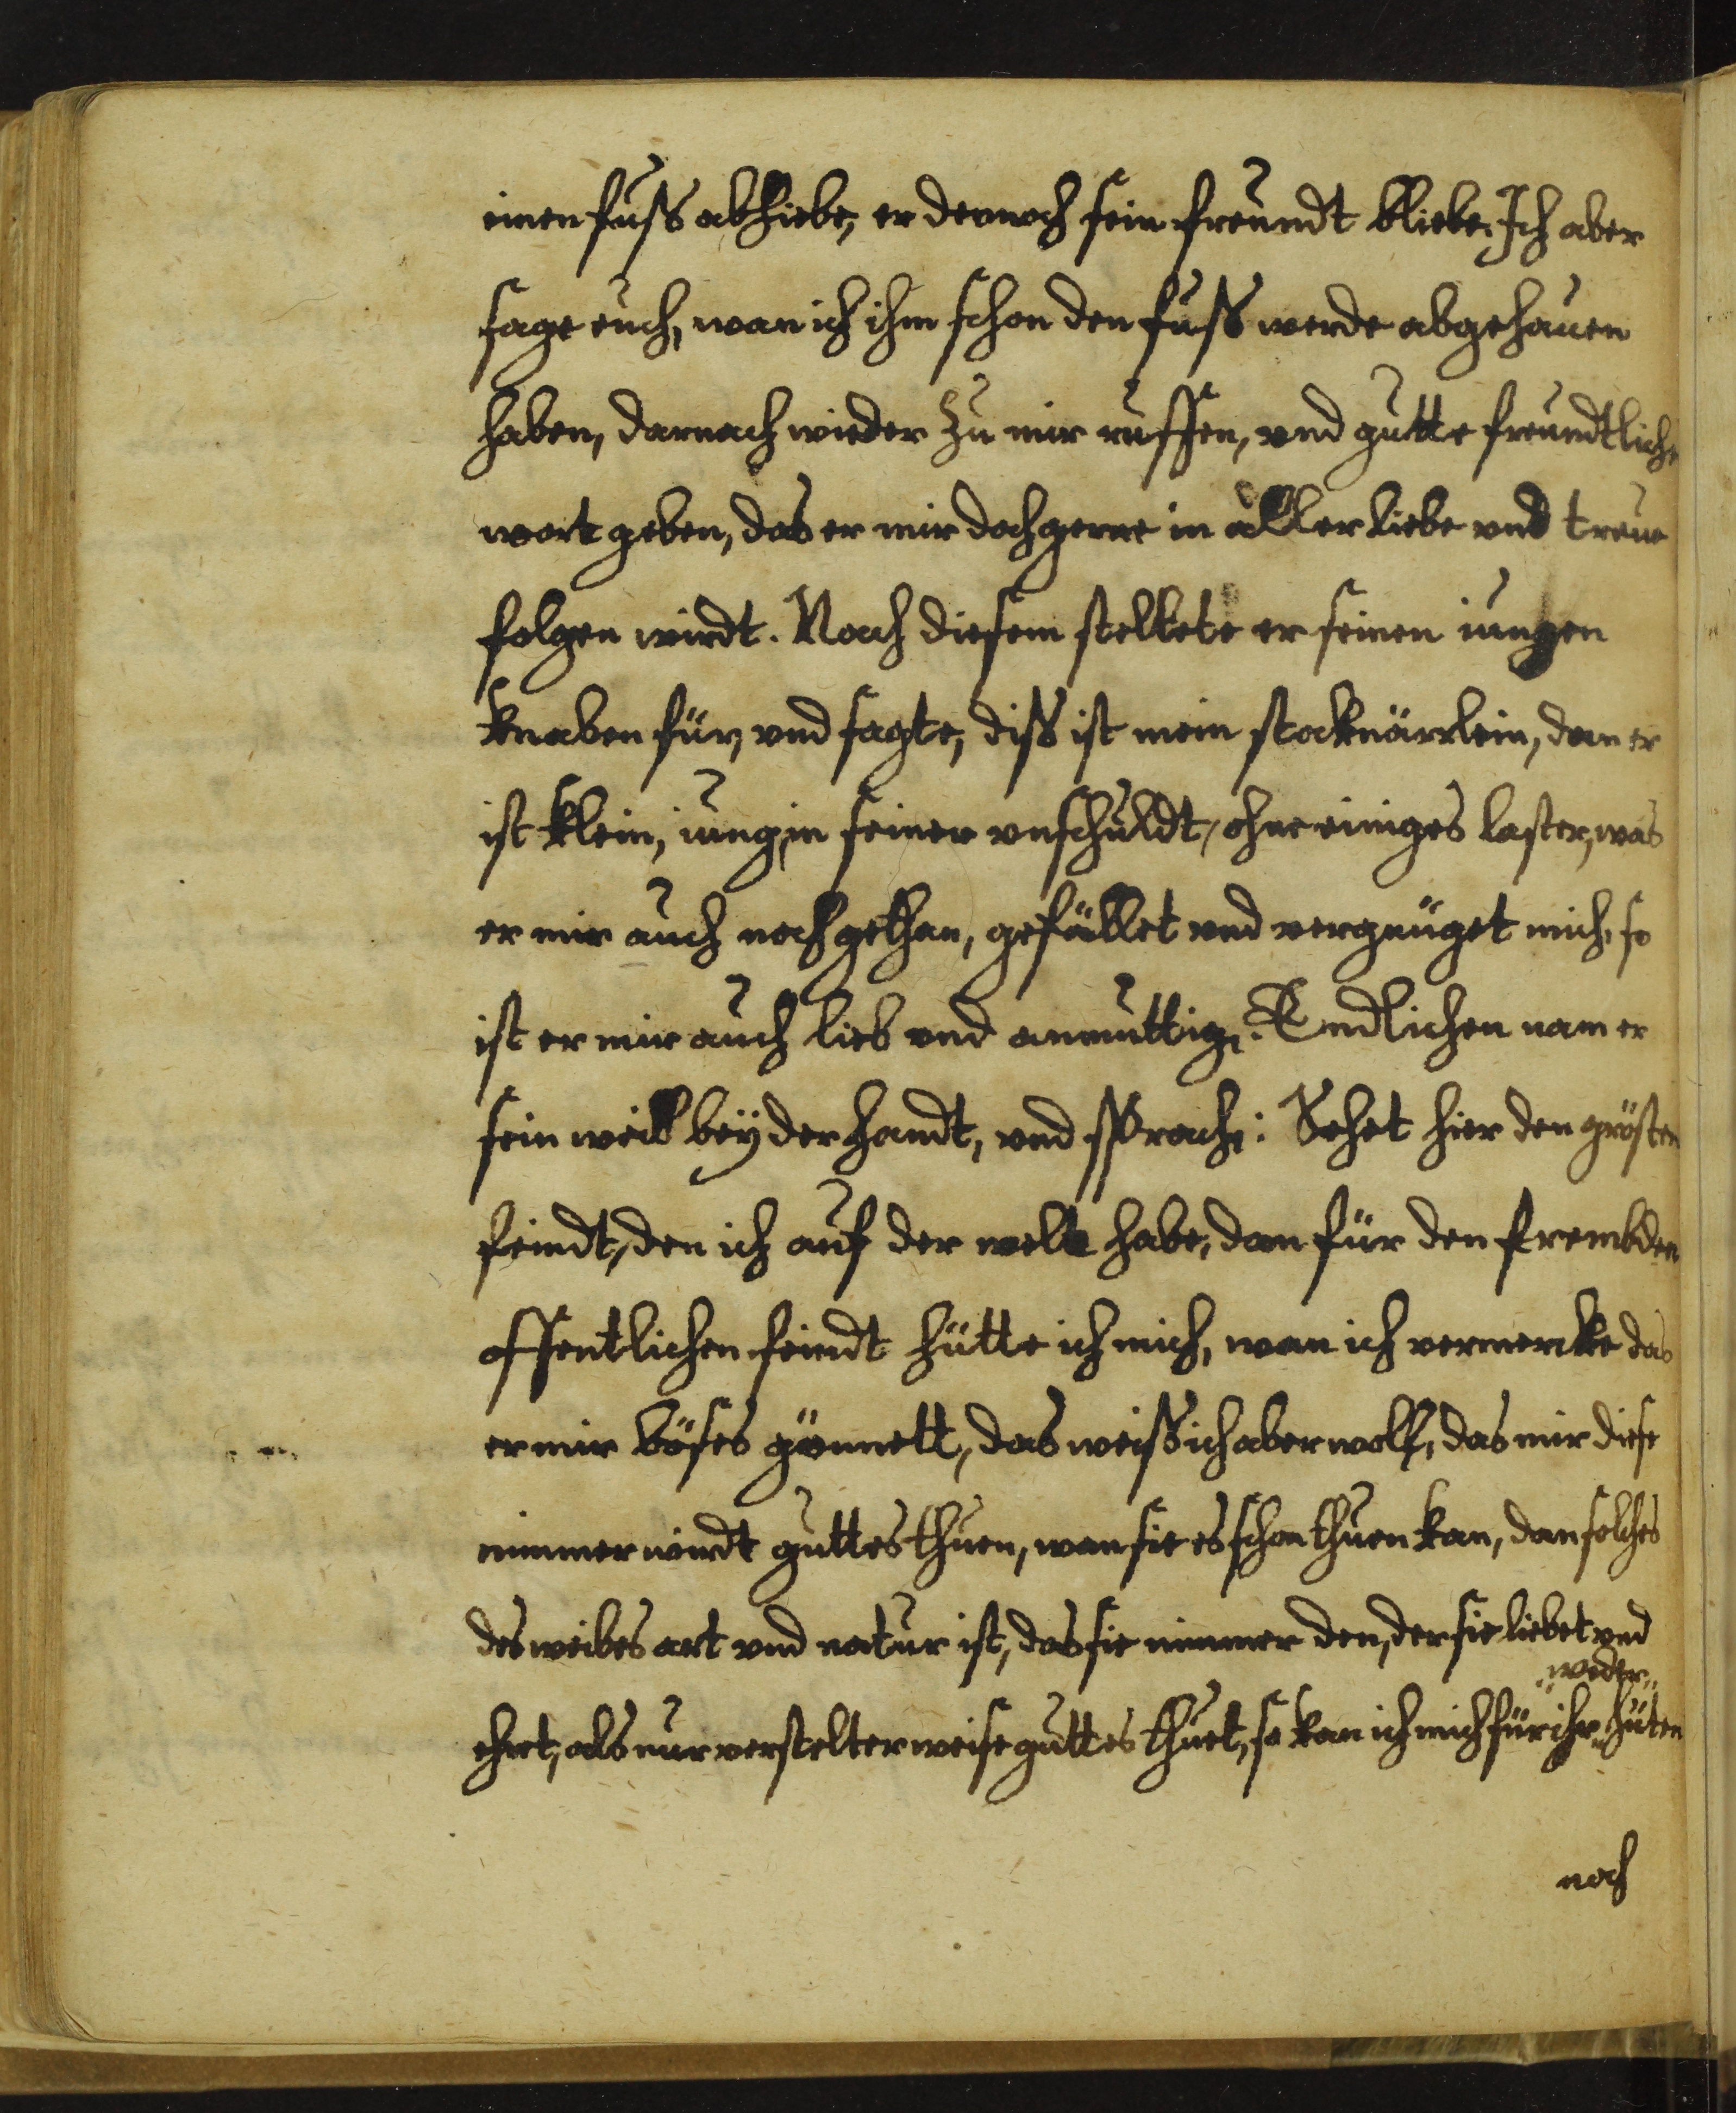 einen fuss abhiebe, er dennoch sein freundt bliebe. Ich aber
sage euch, wan ich ihm schon den fuss werde abgehauen
haben, darnach wieder zu mir ruffen, vnd gutte freundtliche
wort geben, das er mir doch gerne in aller liebe vnd treue
folgen wirdt. Nach diesem stellete er seinen iungen
knaben für, vnd sagte, diss ist mein stocknärrlein, dan er
ist klein, iung, in seiner vnschuldt, ohne einiges laster, was
er mir auch noch gethan, gefället vnd vergnüget mich, so
ist er mir auch lieb vnd anmuttig. Endlichen nam er
sein weib beÿ der handt, vnd sprach: Sehet hier den grösten
feindt, den ich auf der welt habe, dan für den frembden
offentlichen feindt hütte ich mich, wan ich vermercke das
er mir böses gönnett, das weiss ich aber wohl, das mir diese
nimmer wirdt guttes thuen, wan sie es schon thuen kan, dan solches
des weibes art vnd natur ist, das sie nimmer den, der sie liebet vnd
weder
ehret, als nur verstelter weise guttes thuet, so kan ich mich für ihr hüten
noch